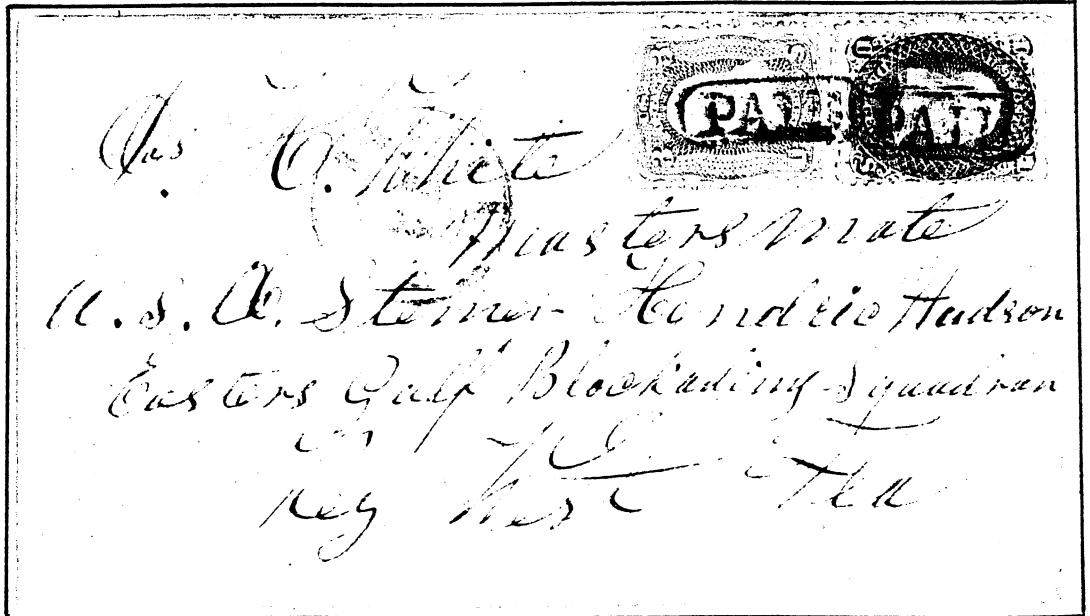 PAID PAID
Jas. C. White
Masters Mate
U.S.A. Stemer Hendric Hudson
Easters Gulf Blockading Squadron
Key West Fla